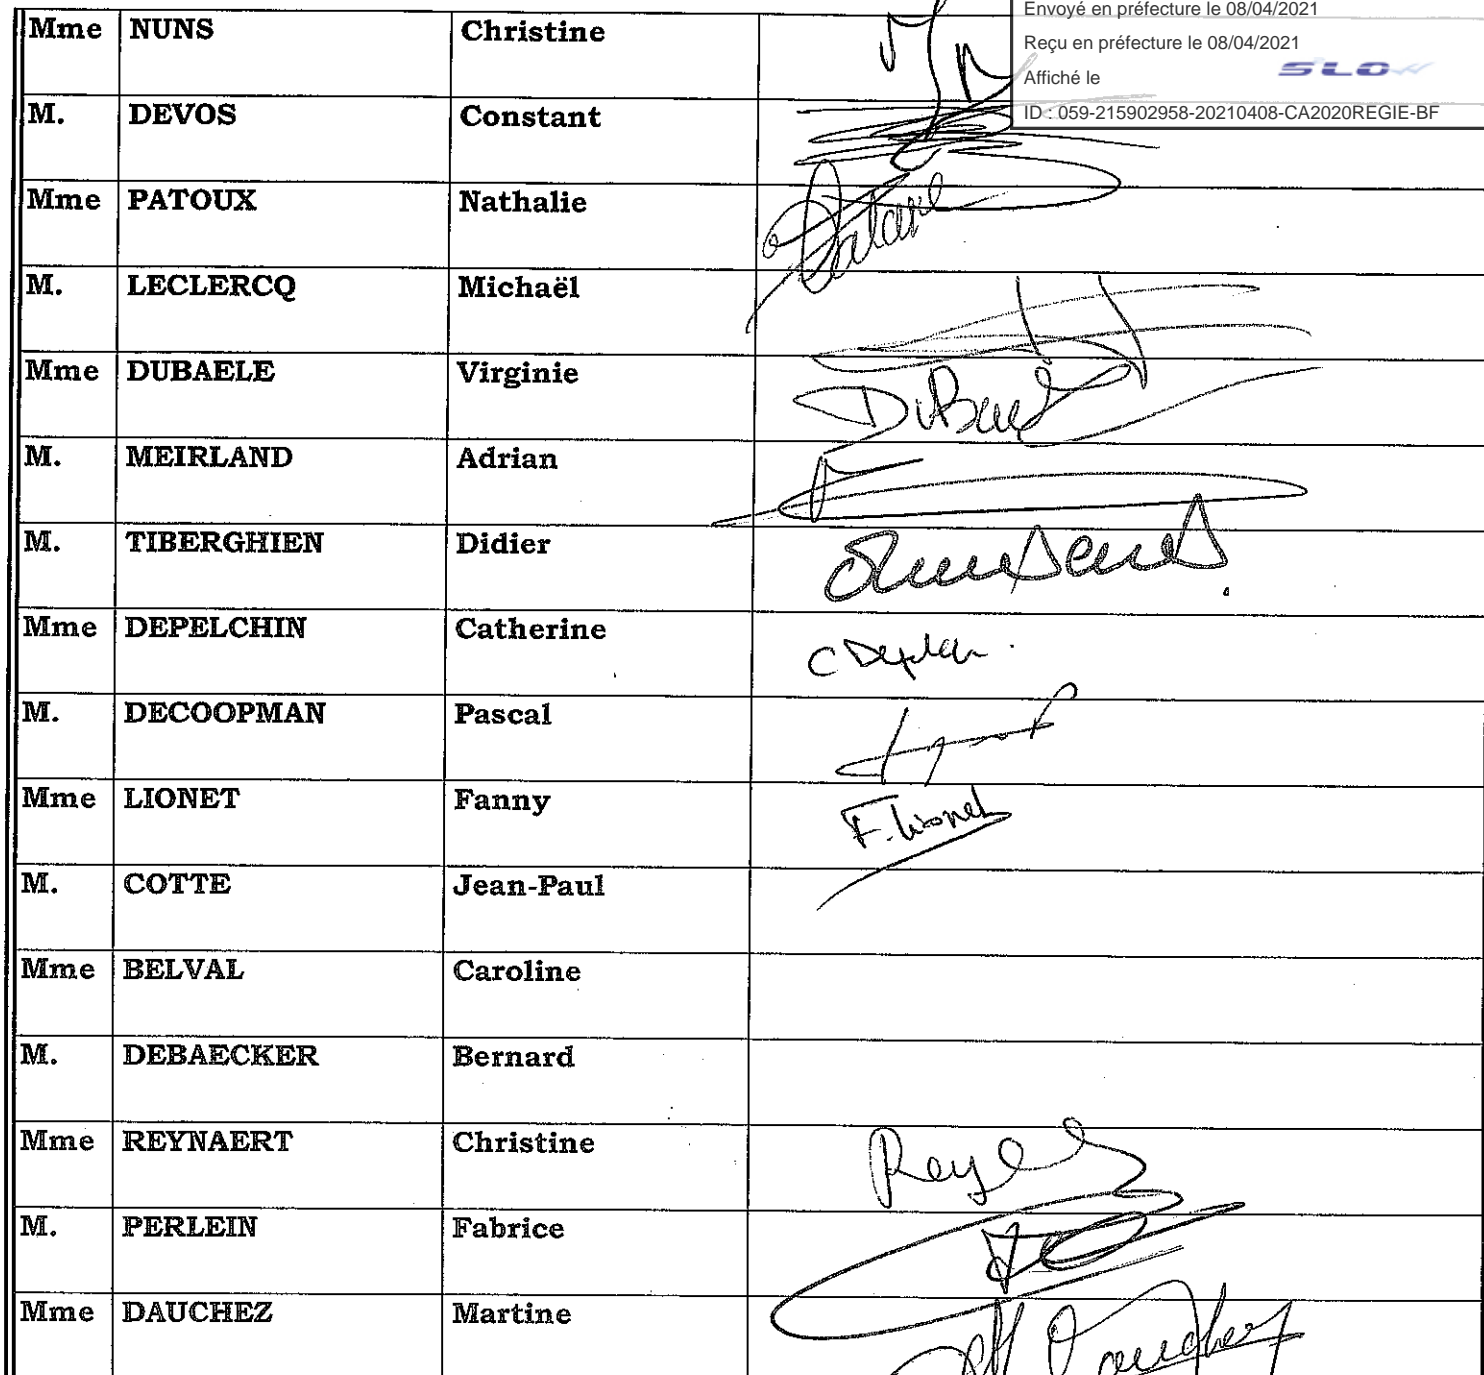 Envoyé en préfecture le 08/04/2021
Reçu en préfecture le 08/04/2021
Affiché le SLOW
ID : 059-215902958-20210408-CA2020REGIE-BF
Mme NUNS Christine
M. DEVOS Constant
Mme PATOUX Nathalie
M. LECLERCQ Michaël
Mme DUBAELE Virginie
M. MEIRLAND Adrian
M. TIBERGHIEN Didier
Mme DEPELCHIN Catherine
M. DECOOPMAN Pascal
Mme LIONET Fanny F. Lionet
M. COTTE Jean-Paul
Mme BELVAL Caroline
M. DEBAECKER Bernard
Mme REYNAERT Christine
M. PERLEIN Fabrice
Mme DAUCHEZ Martine